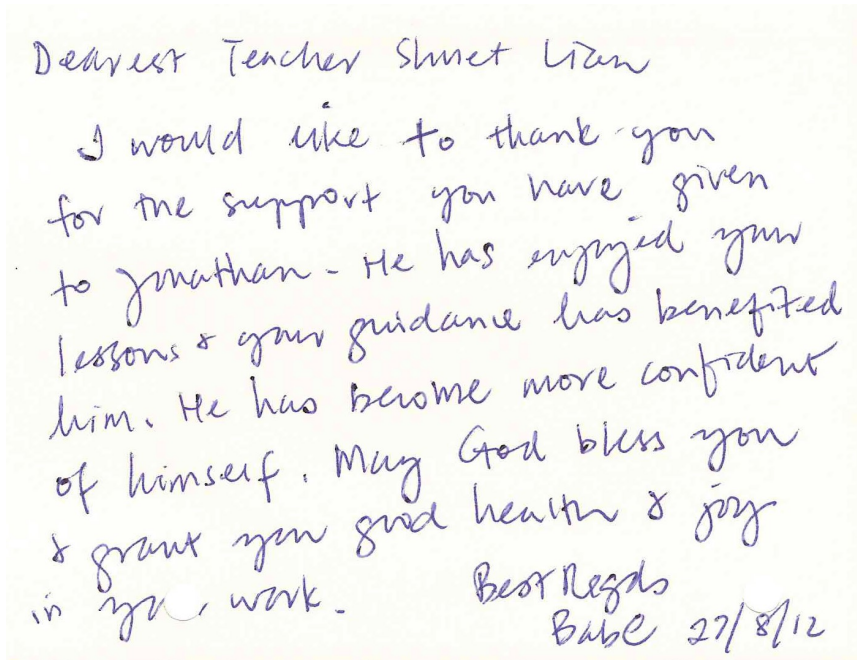 Dearest Teacher Shuet Lian
I would like to thank you
for the support you have given
to Jonathan. He has enjoyed your
lessons & your guidance has benefited
him. He has become more confident
of himself. May God bless you
& grant you good health & joy
in work.
Best Regds
Babe 27/8/12